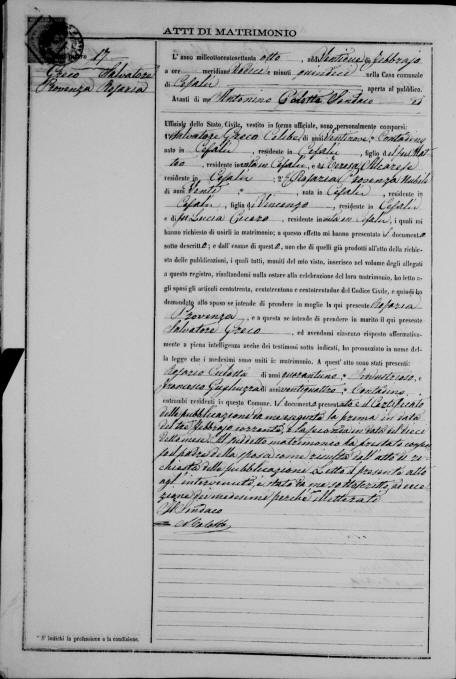 ATTI DI MATRIMONIO
17
Greco Salvatore
Provenza Rosaria
L'anno milleottocentosettantaotto, addì Ventuno di febbrajo
a ore meridiane dodeci e minuti quindici, nella Casa comunale
di Cefalù aperta al pubblico.
Avanti di me Antonino Sindaco ed
Uffiziale dello Stato Civile, vestito in forma ufficiale, sono personalmente comparsi:
1° Salvatore Greco Celibe di anni Ventinove, Contadino
nato in Cefalù, residente in Cefalù, figlio del fu Mat-
teo, residente in vita in Cefalù, e di Teresa
residente in Cefalù; 2° Rosaria Provenza Nubile
di anni Venti, nata in Cefalù, residente in
Cefalù, figlia di Vincenzo, residente in Cefalù
e di fu Lucia, residente in vita in Cefalù, i quali mi
hanno richiesto di unirli in matrimonio; a questo effetto mi hanno presentato il documento
sotto descritto; e dall'esame di questo, non che di quelli già prodotti all'atto della richie-
sta delle pubblicazioni, i quali tutti, muniti del mio visto, inserisco nel volume degli allegati
a questo registro, risultandomi nulla ostare alla celebrazione del loro matrimonio, ho letto a-
gli sposi gli articoli centotrenta, centotrentuno e centotrentadue del Codice Civile, e quindi ho
domandato allo sposo se intende di prendere in moglie la qui presente Rosaria
Provenza, e a questa se intende di prendere in marito il qui presente
Salvatore Greco, ed avendomi ciascuno risposto affermativamente
a piena intelligenza anche dei testimoni sotto indicati, ho pronunziato in nome del-
la legge che i medesimi sono uniti in matrimonio. A quest'atto sono stati presenti:
Rosario di anni quarantuno, Industrioso, e
Francesco di anni ventiquattro, Contadino,
entrambi residenti in questo Comune. Il documento presentato è il Certificato
delle pubblicazioni da me eseguite la prima in data
del tre febbrajo corrente, e la seconda in data del dieci
detto mese. Al suddetto matrimonio ha prestato consen-
so il padre della sposa come risulta dall'atto di ri-
chiesta delle pubblicazione. Letto il presente atto
agl'intervenuti, è stato da me sottoscritto, ad ecce-
zione dei medesimi perchè illetterati
Il Sindaco
* S'indichi la professione o la condizione.